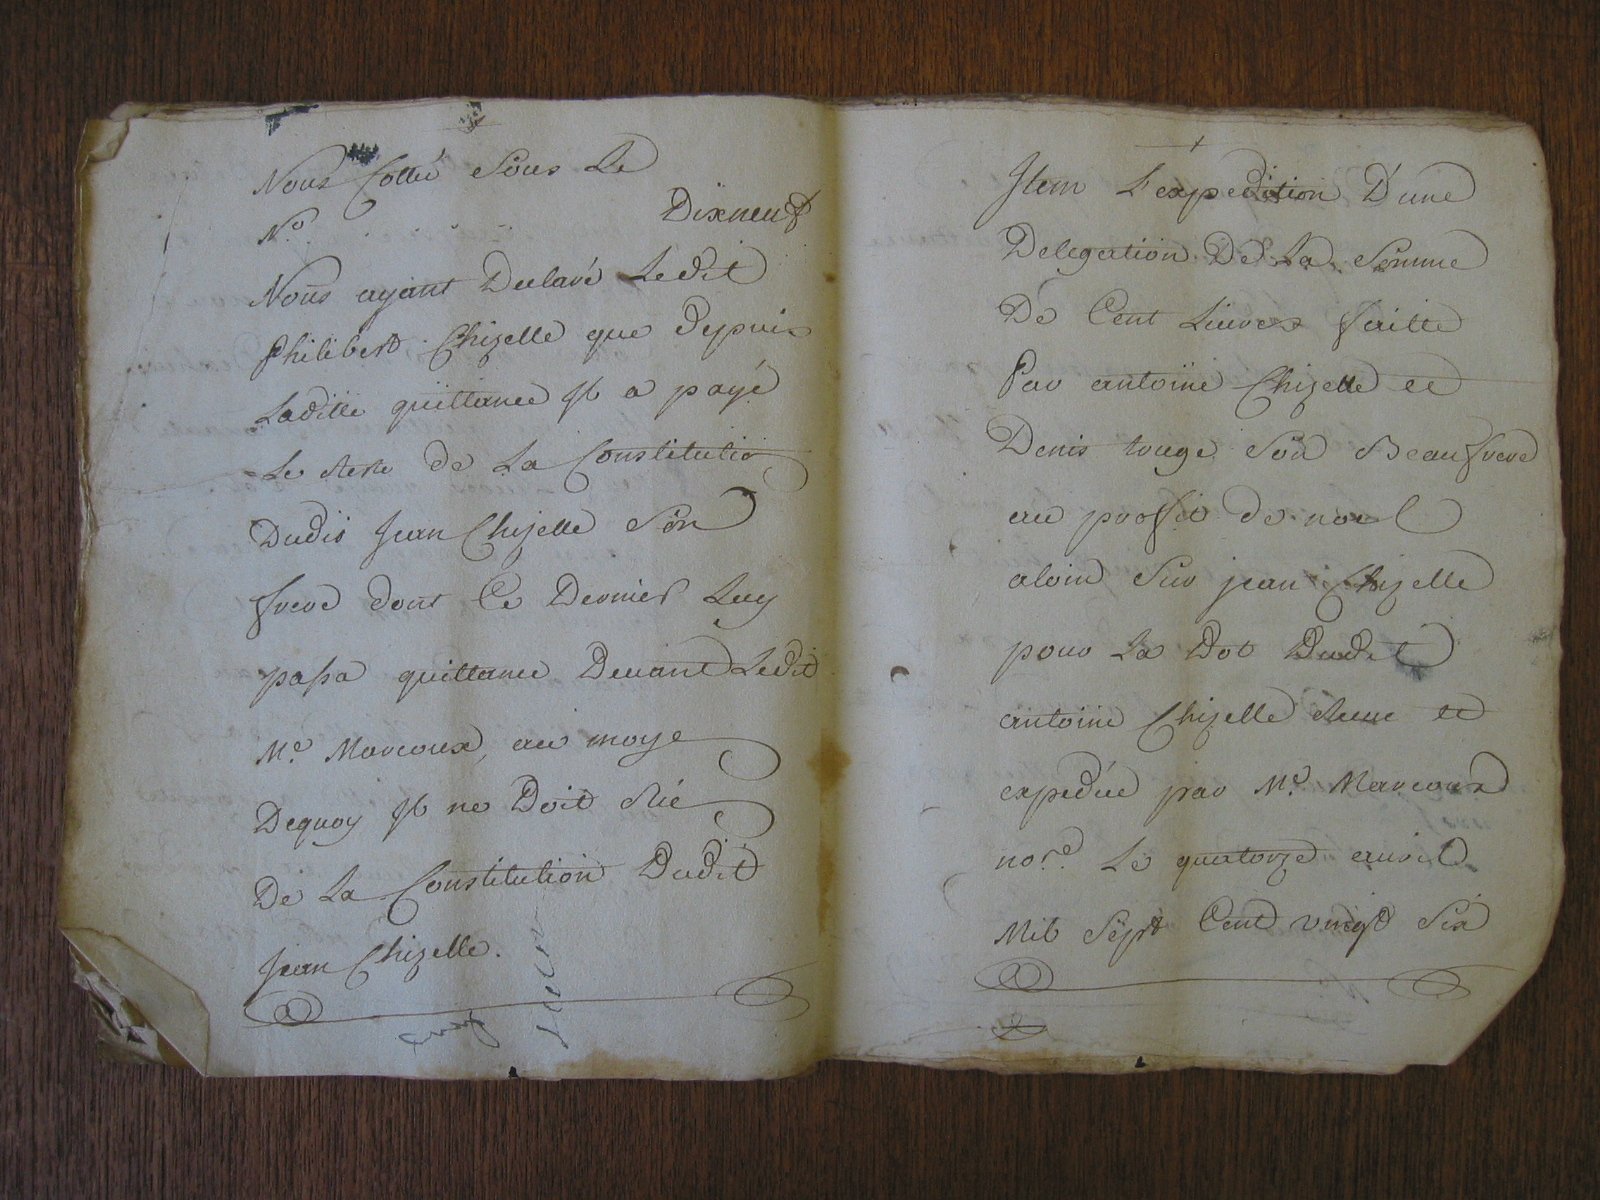 Nous Cotté Sous Le
N.o Dixneuf
Nous ayant Declaré Ledit
Philibert Chizelle que depuis
Laditte quittance Jl a payé
Le Reste de La Constitutio
Dudit Jean Chizelle Son
frere dont Ce Dernier Luy
passa quittance Devant Ledit
M.e Marcoux, au moye
Dequoy Jl ne Doit Rie
De La Constitution Dudit
Jean Chizelle.
Jtem L'expedition D'une
Delegation De La Somme
De Cent Livres faitte
Par antoine Chizelle et
Denis rouge Son Beaufrere
au proffit de noel
aloin Sur jean Chizelle
pour La Dot Dudit
antoine Chizelle Reçue et
expediée par M.e Marcoux
no.re Le quatorze avril
Mil Sept Cent vingt Six